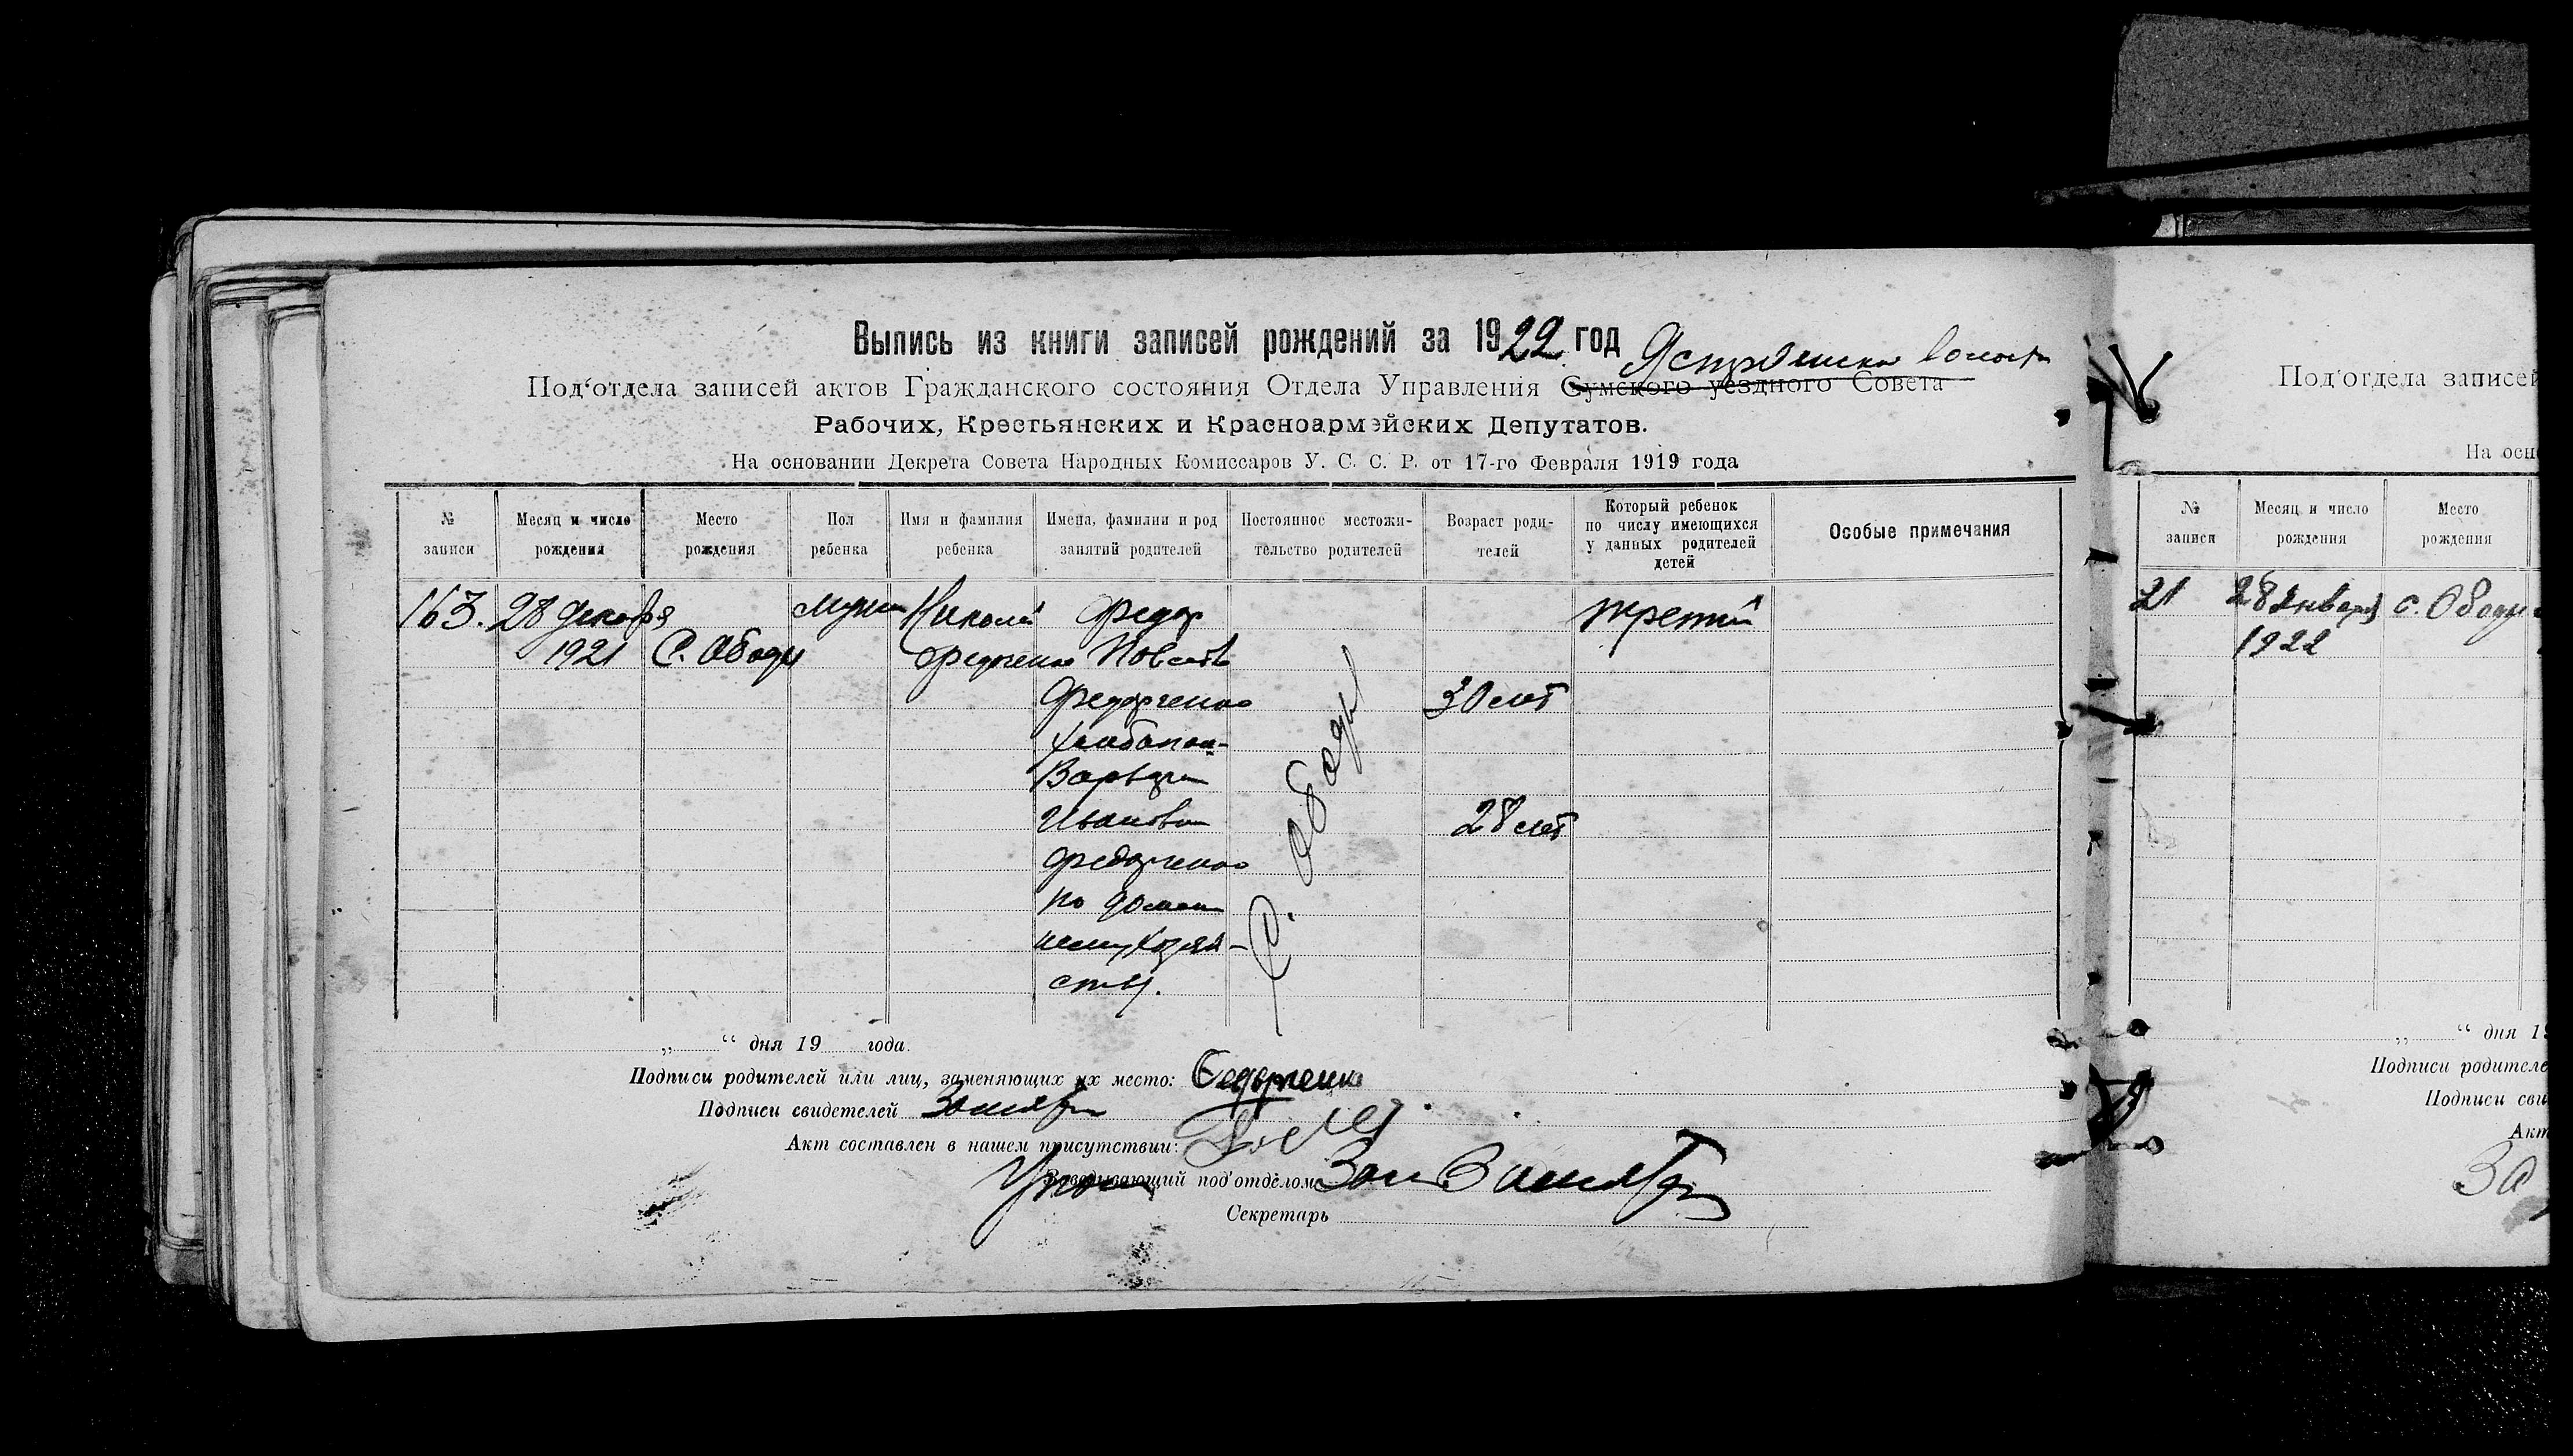 Выпись из книги записей рождений за 1922 год
Под'отдела записей актов Гражданского состояния Отдела Управления Сумского уездного Совета
Рабочих, Крестьянских и Красноармейских Депутатов.
На основании Декрета Совета Народных Комиссаров У. С. С. Р. от 17-го Февраля 1919 года
№ записи
Месяц и число рождения
Место рождения
Пол ребенка
Имя и фамилия ребенка
Имена, фамилии и род занятий родителей
Постоянное местожительство родителей
Возраст родителей
Который ребенок по числу имеющихся у данных родителей детей
Особые примечания
163. 28 декабря Николай Федор третий
1921 С. Ободы
Федорченко 30 лет
Варвара
Ивановна 28 лет
Федорченко
по домаш
нему хозяй-
ству.
С. Ободы
„ “ дня 19 года.
Подписи родителей или лиц, заменяющих их место: Федорченко
Подписи свидетелей
Акт составлен в нашем присутствии:
Заведывающий под'отделом
Секретарь
Под'отдела записей
На осн
№ записи
Месяц и число рождения
Место рождения
21 28 января с. Ободы
1922
„ “ дня 1
Подписи родителе
Подписи сви
Акт